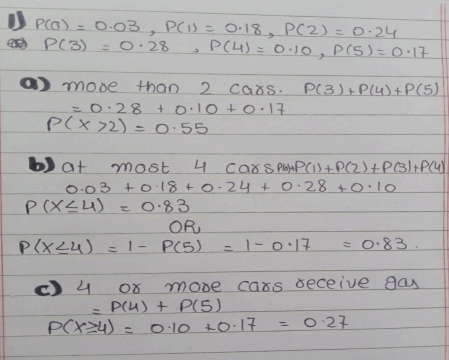 1) P(0) = 0.03, P(1) = 0.18, P(2) = 0.24
P(3) = 0.28 , P(4) = 0.10, P(5) = 0.17
a) more than 2 cars. P(3)+P(4)+P(5)
= 0.28 + 0.10 + 0.17
P(X>2) = 0.55
b) at most 4 cars P(1)+P(2)+P(3)+P(4)
0.03 + 0.18 + 0.24 + 0.28 + 0.10
P(X≤4) = 0.83
OR,
P(X≤4) = 1 - P(5) = 1 - 0.17 = 0.83.
c) 4 or more cars receive gas
= P(4) + P(5)
P(X≥4) = 0.10 + 0.17 = 0.27